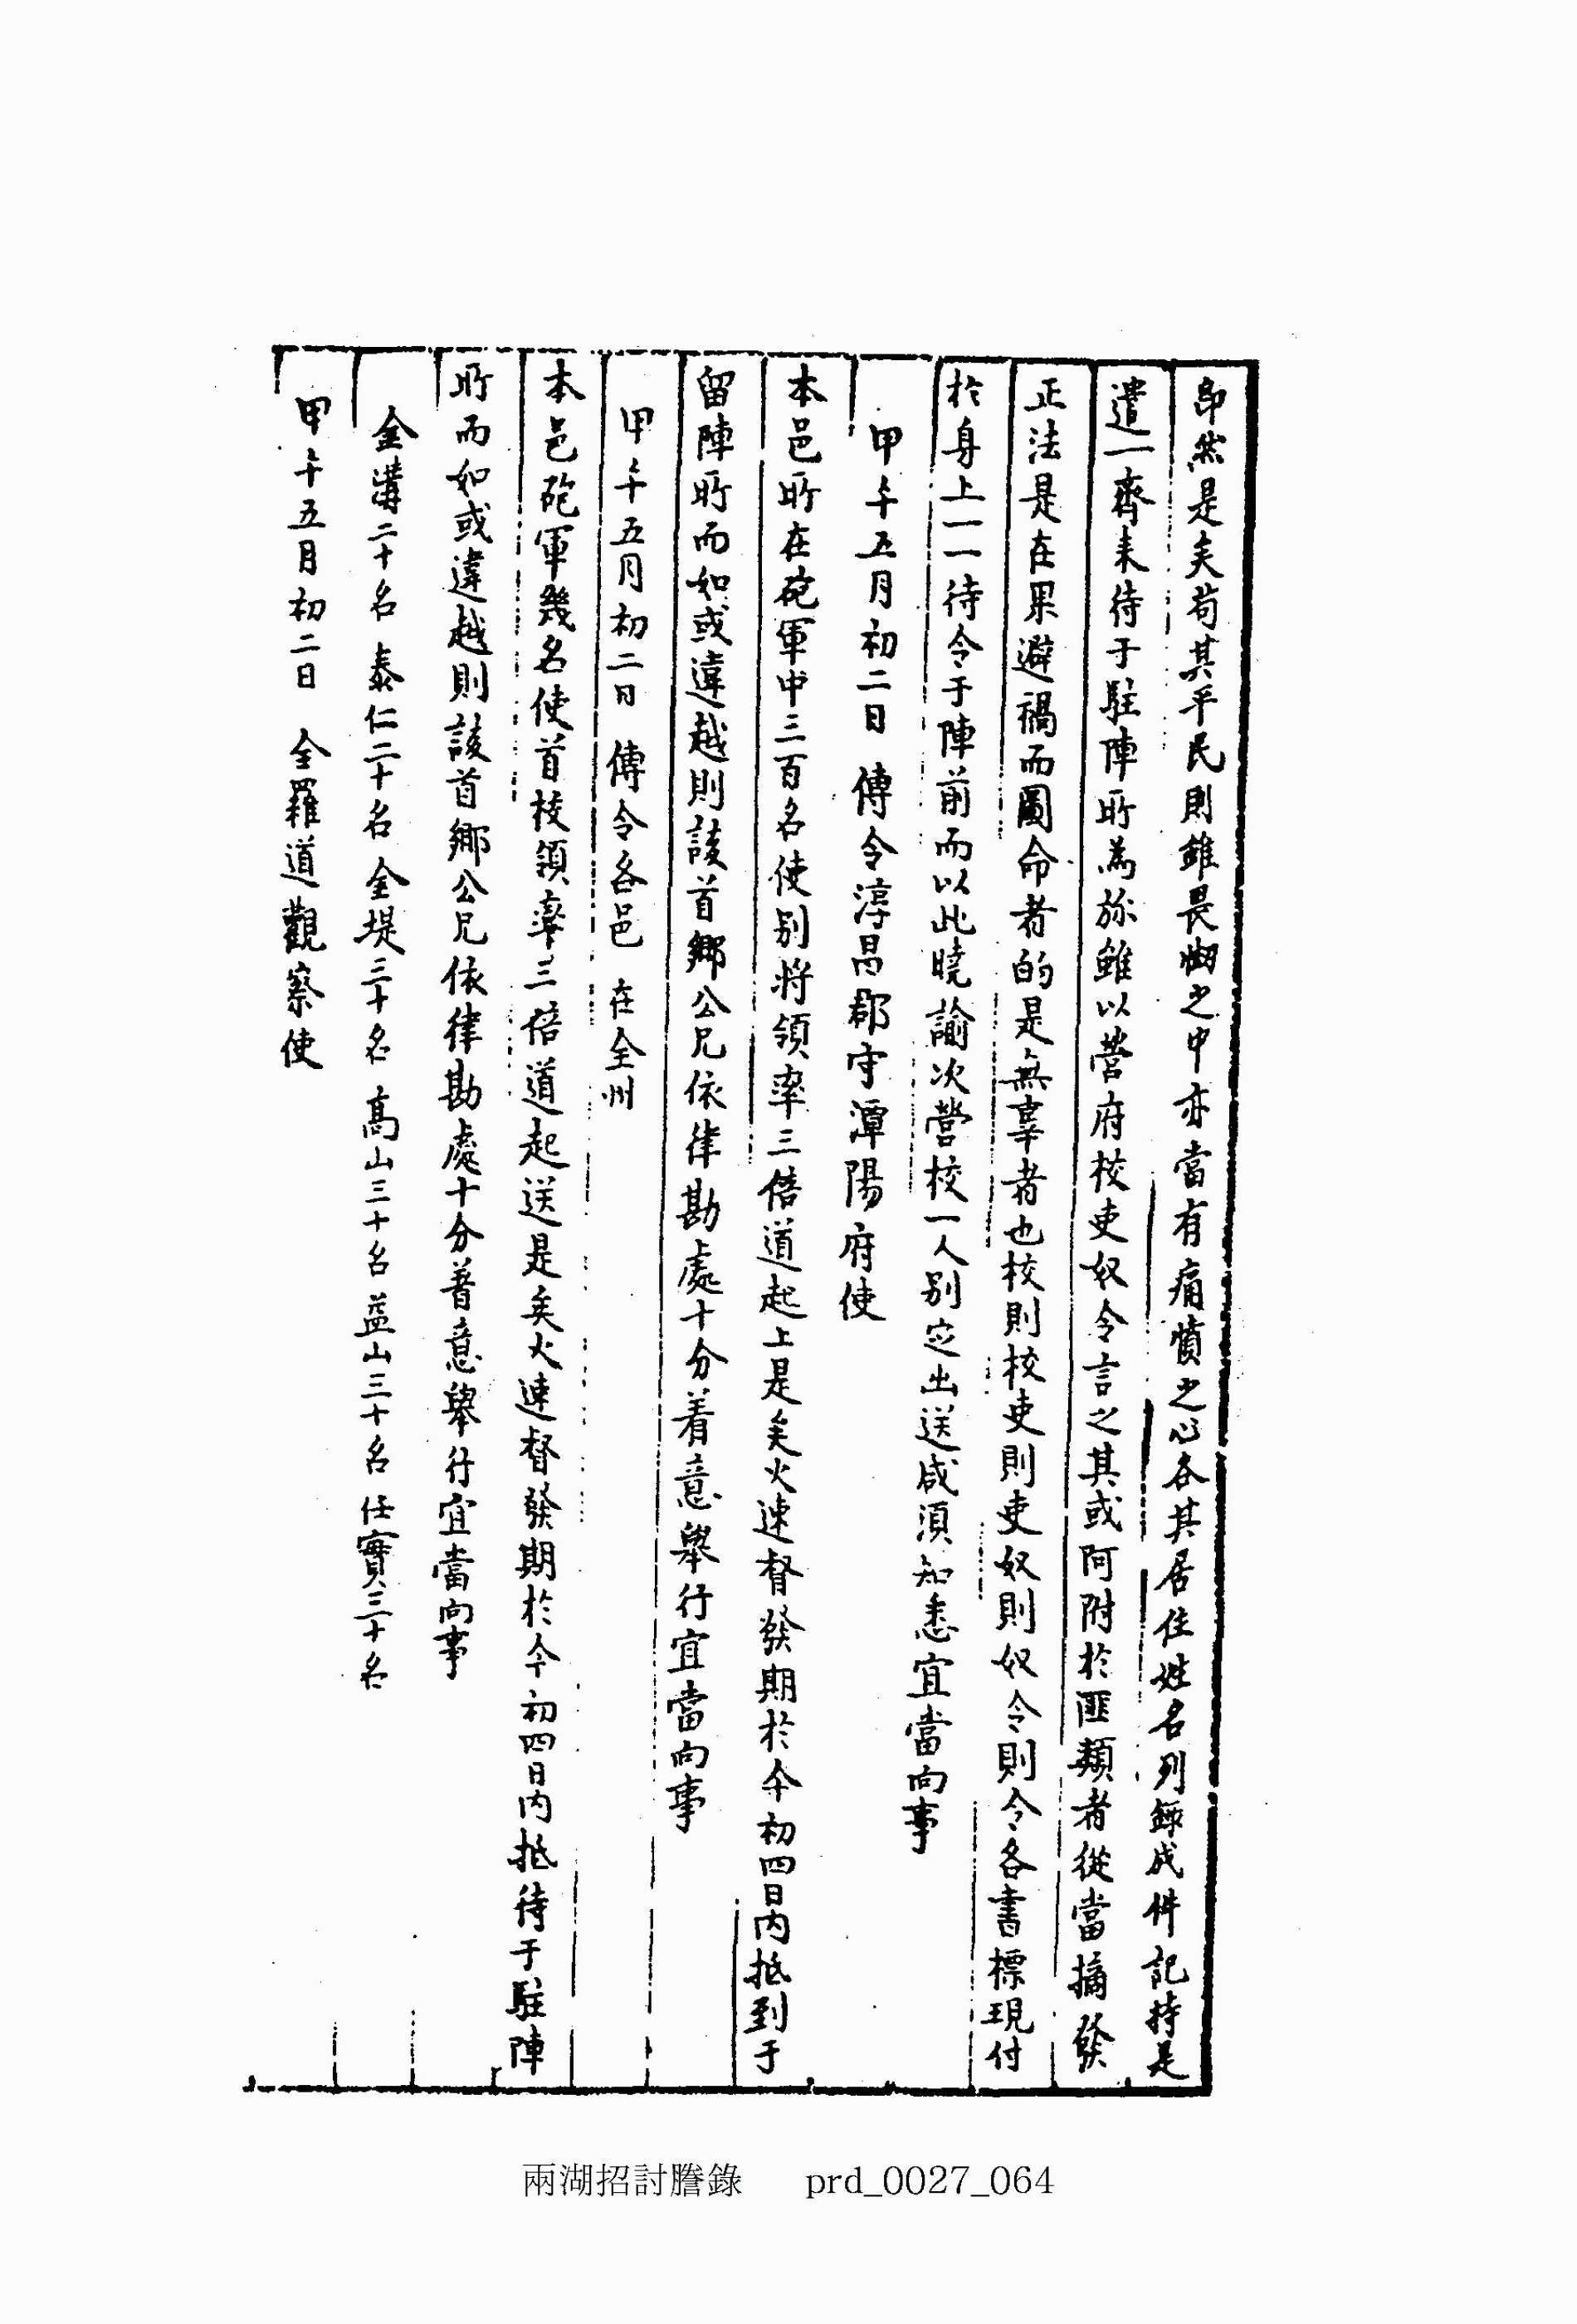 卽然是矣苟其平民則雖畏㥘之中亦當有痛憤之心各其居住姓名列錄成件記持是
遣一齊來待于駐陣所爲旀雖以營府校吏奴令言之其或阿附於匪類者從當摘發
正法是在果避禍而圖命者的是無辜者也校則校吏則吏奴則奴令則令各書標現付
於身上一一待令于陣前而以此曉諭次營校一人別定出送咸須知悉宜當向事
甲午五月初二日 傳令淳昌郡守潭陽府使
本邑所在砲軍中三百名使別將領率三倍道起上是矣火速督發期於今初四日內抵到于
留陣所而如或違越則該首鄕公兄依律勘處十分着意擧行宜當向事
甲午五月初二日 傳令各邑 在全州
本邑砲軍幾名使首校領率三倍道起送是矣火速督發期於今初四日內抵待于駐陣
所而如或違越則該首鄕公兄依律勘處十分着意擧行宜當向事
金溝二十名 泰仁二十名 金堤三十名 高山三十名 益山三十名 任實三十名
甲午五月初二日 全羅道觀察使
兩湖招討謄錄 prd_0027_064